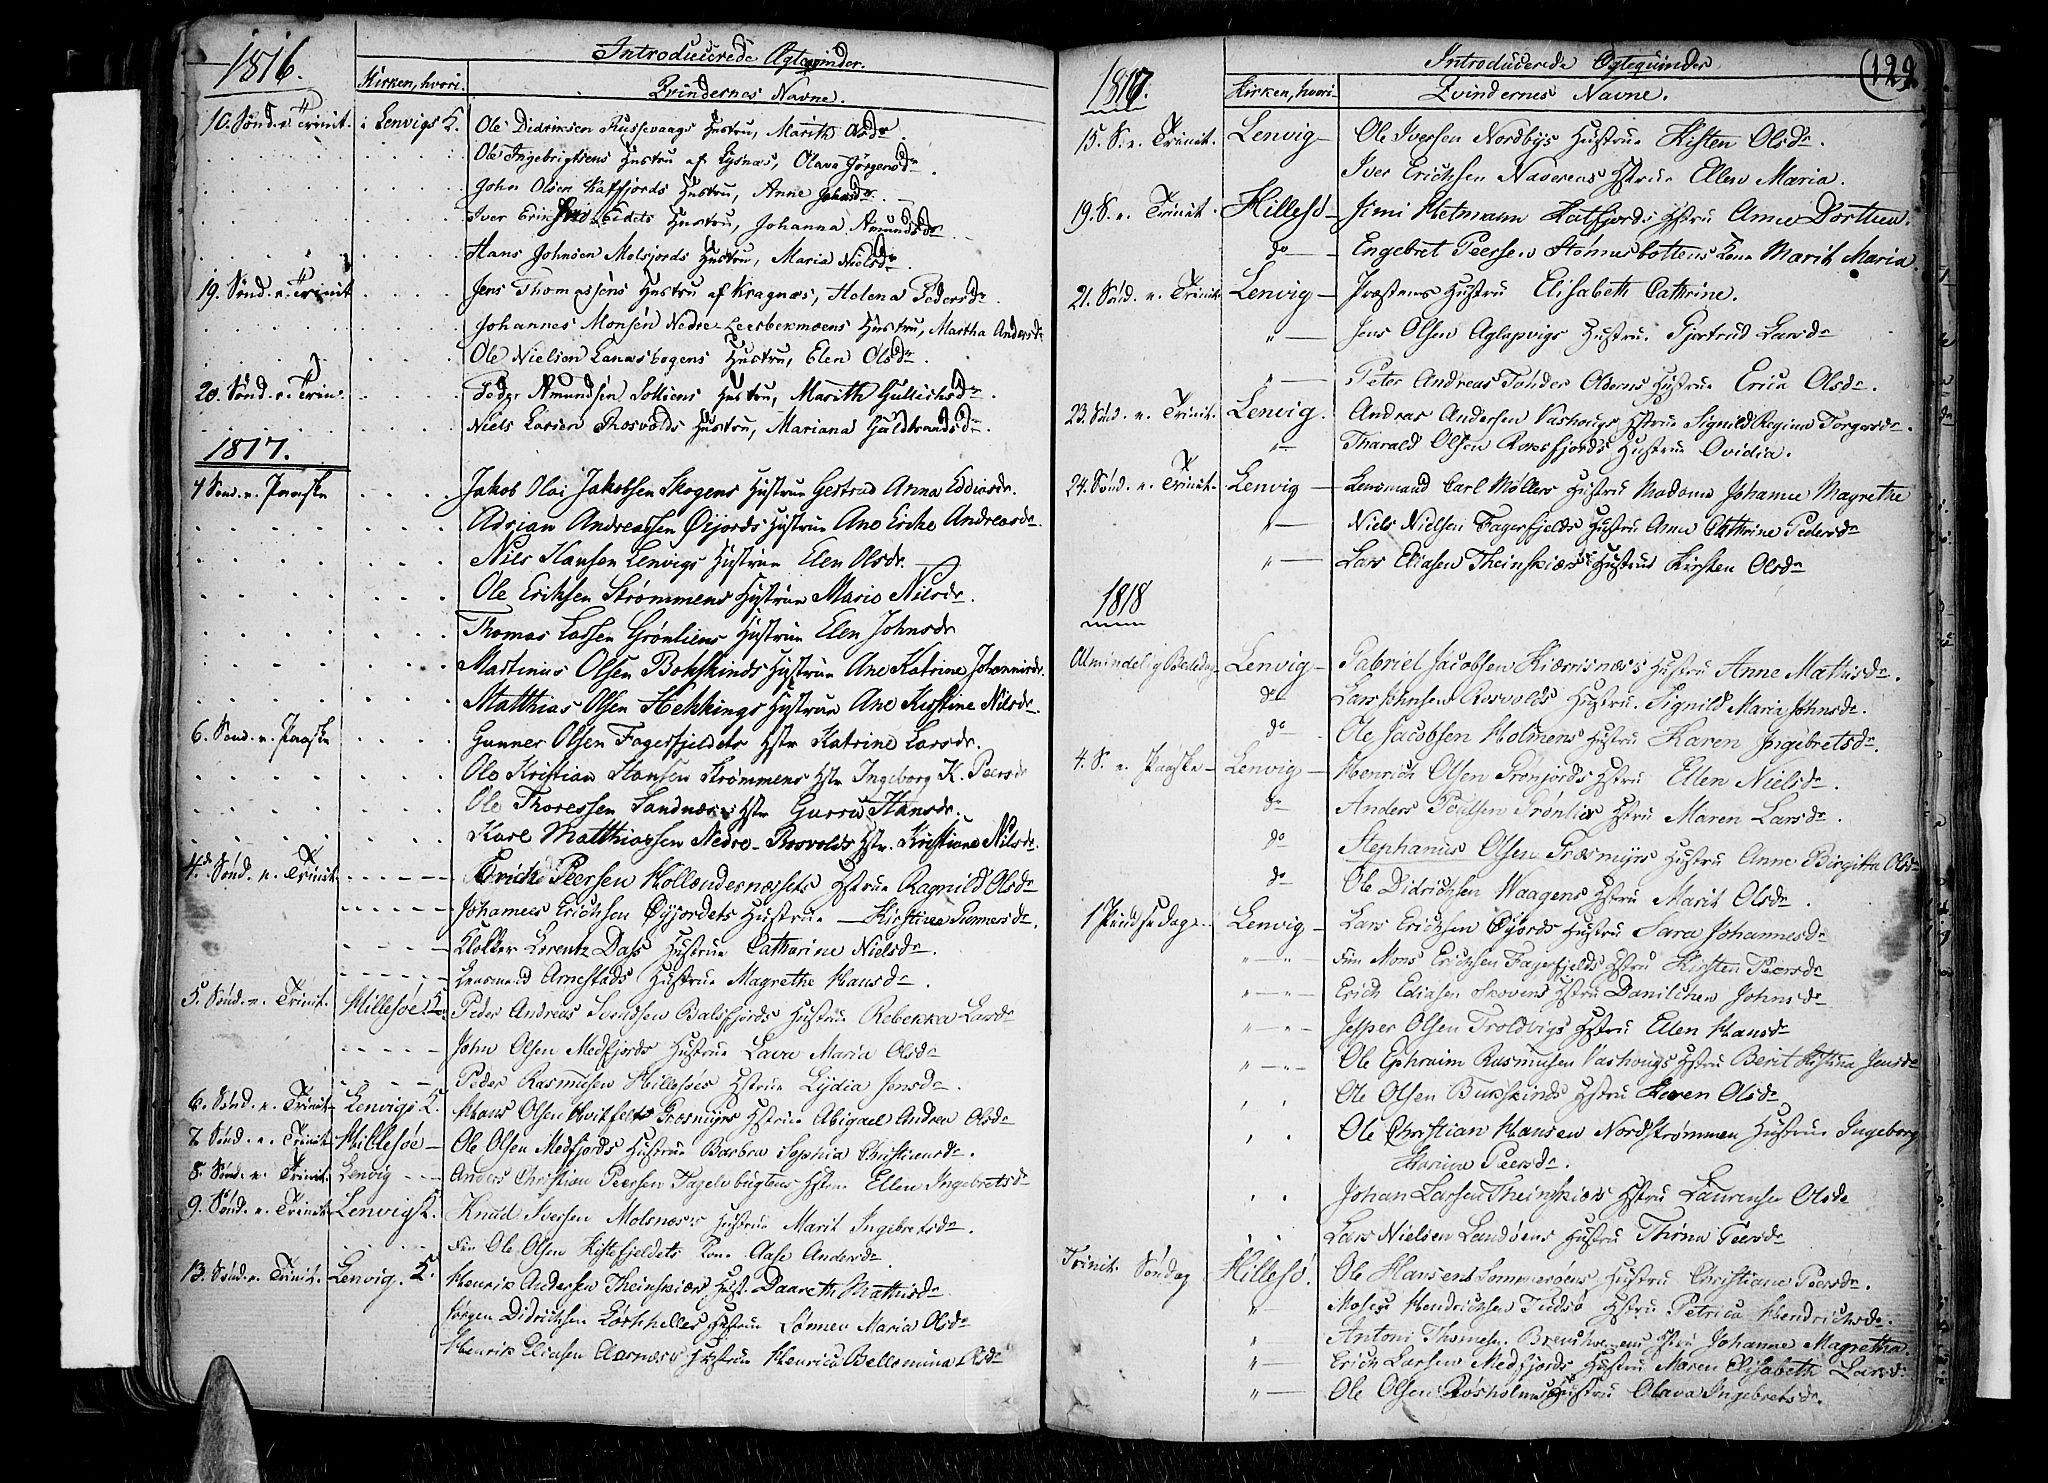 1816.
Introducerede Ægtequinder.
Kirken, hvori.
Qvindernes Navne.
10. Sønd. e. Trinit. i Lenvigs K. Ole Didriksen Russevaags Hustru, Marith Olsdr.
Ole Ingebrigtsens Hustru af Lysnæs, Olava Jörgensdr.
John Olsen Kaffjords Hustru, Anne Johnsdr.
Iver Eidets Hustru, Johanna Amundsdr.
Hans Johnsen Melsjords Hustru, Maria Nielsdr.
19. Sønd. e. Trinit Jens Thomassens Hustru af Kragnæs, Helena Pedersdr.
Johannes Monsen Nedre Hustru, Martha Andersdr
Ole Nielsen Hustru, Elen Olsdr.
20. Sønd. e. Trin. Peder Amundsen Solliens Hustru, Marith Gullichsdr.
Niels Larsen Rosvolds Hustru, Mariana Guldbrandsdr.
1817.
4 Sønd. e. Paaske Jakob Olai Jakobsen Skogens Hustrue Gertrud Anna Eliasdr.
Adrian Andreassen Øijords Hustrue Ane Andreasdr.
Nils Hansen Lenvigs Hustrue Elen Olsdr.
Ole Eriksen Strømmens Hustrue Marie Nilsdr.
Thomas Lassen Grønliens Hustrue Elen Johnsdr
Martinus Olsen Bokskinds Hustrue Ane Katrine Johannisdr.
Matthias Olsen Hekkings Hustrue Ane Kirstine Nilsdr.
6. Sønd. e. Paaske Gunner Olsen Fagerfjeldets Hstr Katrine Larsdr.
Ole Kristian Hansen Strømmens Hstr Ingeborg K. Peersdr
Ole Thoressen Sandnæs's Hstr Gurru Hansdr.
Karl Matthiassen Nedre-Rosvolds Hstr. Kristiane Nilsdr.
4de Sønd. e. Trinit. Erich Peersen Hollændernæssets Hstrue Ragnild Olsdr
Johannes Erichsen Øyjordets Hustrue Kirstine Gunnersdr.
Klokker Lorentz Dass Hustrue Catharine Nielsdr.
Lensmand Arnestads Hustrue Magrethe Hansdr.
5. Sønd. e. Trinit. Hillesøe K. Peder Andreas Svendsen Balsfjords Hustrue Rebekka Larsdr
John Olsen Medfjords Hustrue Lava Maria Olsdr
Peder Rasmusen Hillesöes Hstrue Lydia Jensdr.
6. Sønd. e. Trinit. Lenvigs K. Hans Olsen Hvitfelt Græsmyrs Hstrue Abigael Andrea Olsdr
7. Sønd. e. Trinit Hillesøe Ole Olsen Medfjords Hustrue Barbra Sophia Christiansdr.
8. Sønd. e. Trinit. Lenvig Anders Christian Peersen Hstrue Ellen Ingebretsdr
9. Sønd. e. Trinit. Lenvigs K. Knud Iversen Molsnæs's Hustrue Marit Ingebretsdr.
Ole Olsen Kistefjeldets Kone Aase Andersdr
13. Sønd. e. Trinit. Lenvig. K. Henrik Andersen Theinskiærs Hust. Daareth Mathisdr
Jørgen Didrichsen Hustrue Lønnen Maria Olsdr
Henrik Eliasen Aarnæss Hustrue Henrica Bellemina Olsdr
1817.
Introducerede Ægtequinder
(129.
Kirken, hvori
Qvindernes Navne.
15. S. e. Trinit. Lenvig Ole Iversen Nordbÿs Hustrue Kisten Olsdr.
Iver Erichsen Naverens Hstrue Ellen Maria.
19. S. e. Trinit. Hillesö Jimi Hetmann Katfjords Hstru Anne Dorthea.
do Engebret Peersen Kone Marit Maria.
21. Sønd. e. Trinit Lenvig Præstens Hustru Elisabeth Cathrine.
" Jens Olsen Aglapvigs Hustru Gjertrud Larsdr
" Peter Andreas Tønder Olderens Hustrue Erica Olsdr.
23. Sønd. e. Trinit. Lenvig. Andreas Andersen Vashougs Hstrue Signild Regina Torgersdr.
" Tharald Olsen Hustrue Ovidia.
24. Sønd. e. Trinit. Lenvig Lensmand Carl Möllers Hustru Madame Johanne Magrethe
" Niels Nielsen Fagerfjelds Hustru Anne Cathrine Pedersdr
" Lars Eliasen Theinskiærs Hustrue Kirsten Olsdr
1818
Almindelig Bededag Lenvig Gabriel Jacobsen Kiærrisnæs's Hustru Anne Mathisdr.
do Lars Johnsen Rosvolds Hustru. Signild Maria Johnsdr.
do Ole Jacobsen Holmens Hustru Karen Ingebretsdr.
4. S. e. Paaske Lenvig Henrich Olsen Hstru Ellen Nielsdr.
do Anders Poulsen Grønlies Hstru Maren Larsdr.
do Stephanus Olsen Græsmyrs Hustru Anne Birgitta Olsdr
do Ole Didrichsen Waagens Hstru Marit Olsdr.
1 Pindsedag. Lenvig Lars Erichsen Øijords Hustru Sara Johannesdr
" " Mons Erichsen Fagerfjelds Hstru Kirsten Peersdr
" " Erich Eliasen Skovens Hstru Danilchen Johnsdr
" " Jesper Olsen Troldvigs Hstru Ellen Hansdr
" " Ole Ephraim Rasmusen Vashougs Hstru Berit Kistina Jensdr
Ole Olsen Bukskinds Hstru Karen Olsdr
Ole Christian Hansen Nordstrømmen Hustrue Ingeborg
Karina Peersdr.
Johan Larsen Theinskiærs Hstru Laurense Olsdr
Lars Nielsen Sandøens Hustru Thrine Peersdr
Trinit. Søndag Hillesö. Ole Hansens Sommerøens Hustru Christiane Peersdr.
" Moses Hendrichsen Tudsø Hstru Petrica Hendrichsdr.
" Antoni Thomesen Hstru Johanne Magretha.
" Erich Larsen Medfjords Hustru Maren Elisabeth Larsdr
" Ole Olsen Røsholms Hustru Olava Ingebretsdr.